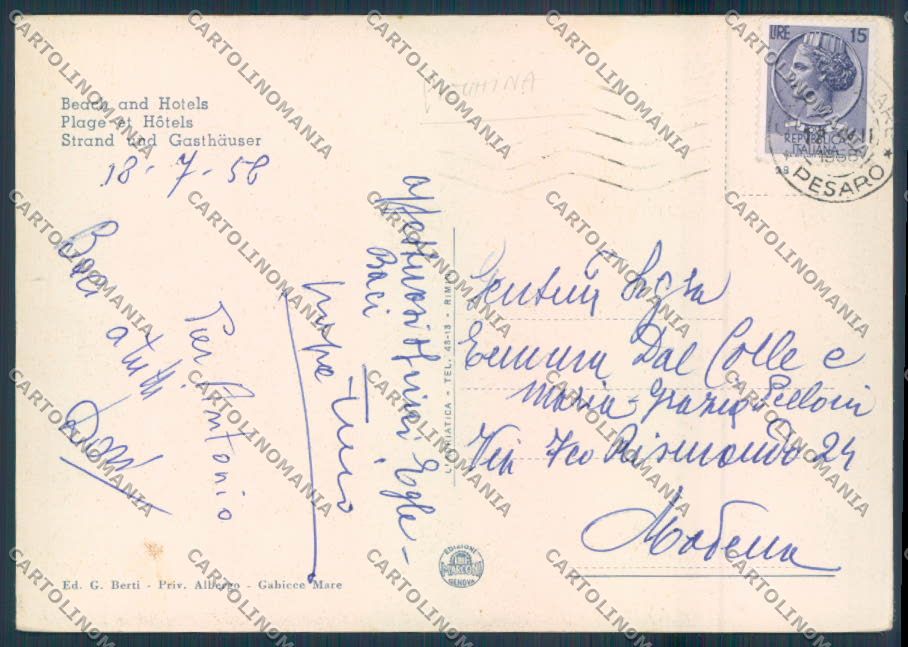 Beach and Hotels
Plage et Hôtels
Strand und Gasthäuser
18-7-58
Baci
a tutti
Pier Antonio
affettuosi Egle-
Baci
Gentili Sig.re
Emma Dal Colle e
Maria-Grazia Pelloni
Via Fco Rismondo 24
Modena
LIRE 15
REPUBBLICA
ITALIANA
PESARO
L'ADRIATICA - TEL. 48-13 - RIMINI
EDIZIONI
GENOVA
Ed. G. Berti - Priv. Albergo - Gabicce Mare
CARTOLINOMANIA